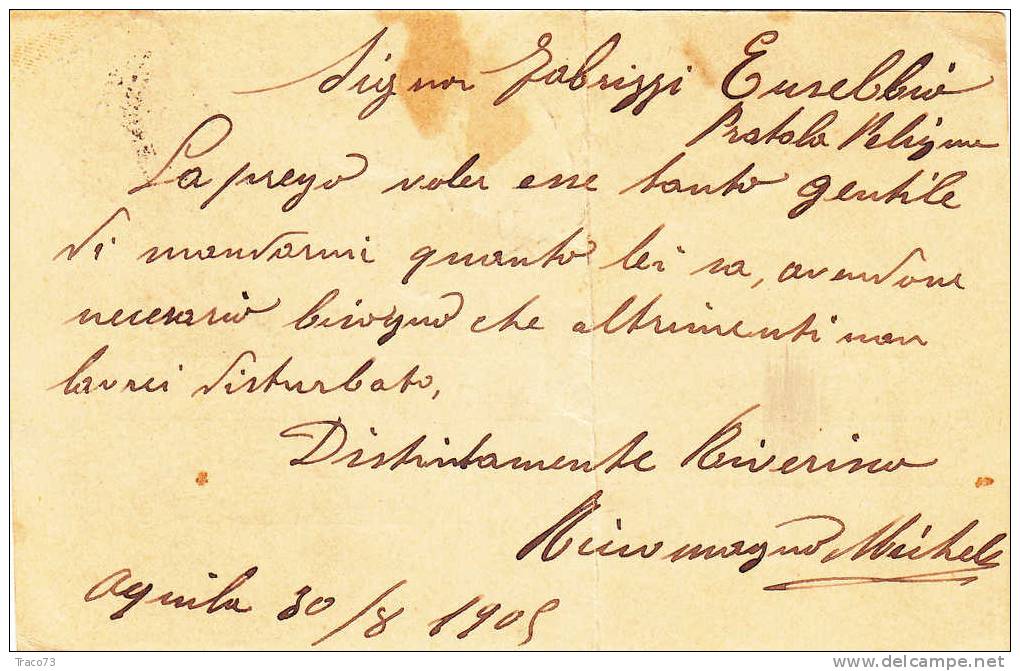 Signor Fabrizzi Eusebbio
Pratola Peligna
La prego voler esse tanto gentile
di mandarmi quanto lei sa, avendone
necesario bisogno che altrimenti non
lavrei disturbato,
Distintamente Riverisco
Michele
Aquila 30/8 1905
Traco73
www.delcampe.net